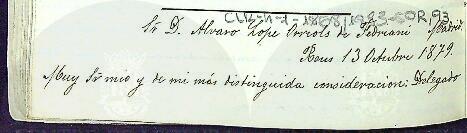 CLK-h-d-1868/1983-COR,93
Sr D. Alvaro Lope Orriols de Fedriani Madrid.
Reus 13 Octubre 1879.
Muy Sr mio y de mi más distinguida consideracion: Delegado